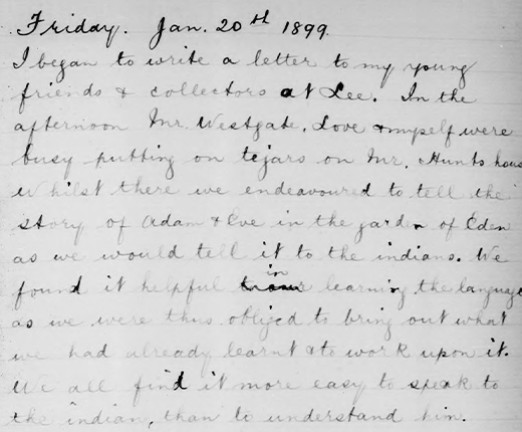 Friday. Jan. 20th 1899.
I began to write a letter to my young
friends & collectors at Lee. In the
afternoon Mr. Westgate, Love & myself were
busy putting on tejars on Mr. Hunts hous
Whilst there we endeavoured to tell the
story of Adam & Eve in the garden of Eden
as we would tell it to the indians. We
found it helpful in learning the language
as we were thus obliged to bring out what
we had already learnt & to work upon it.
We all find it more easy to speak to
the indian, than to understand him.